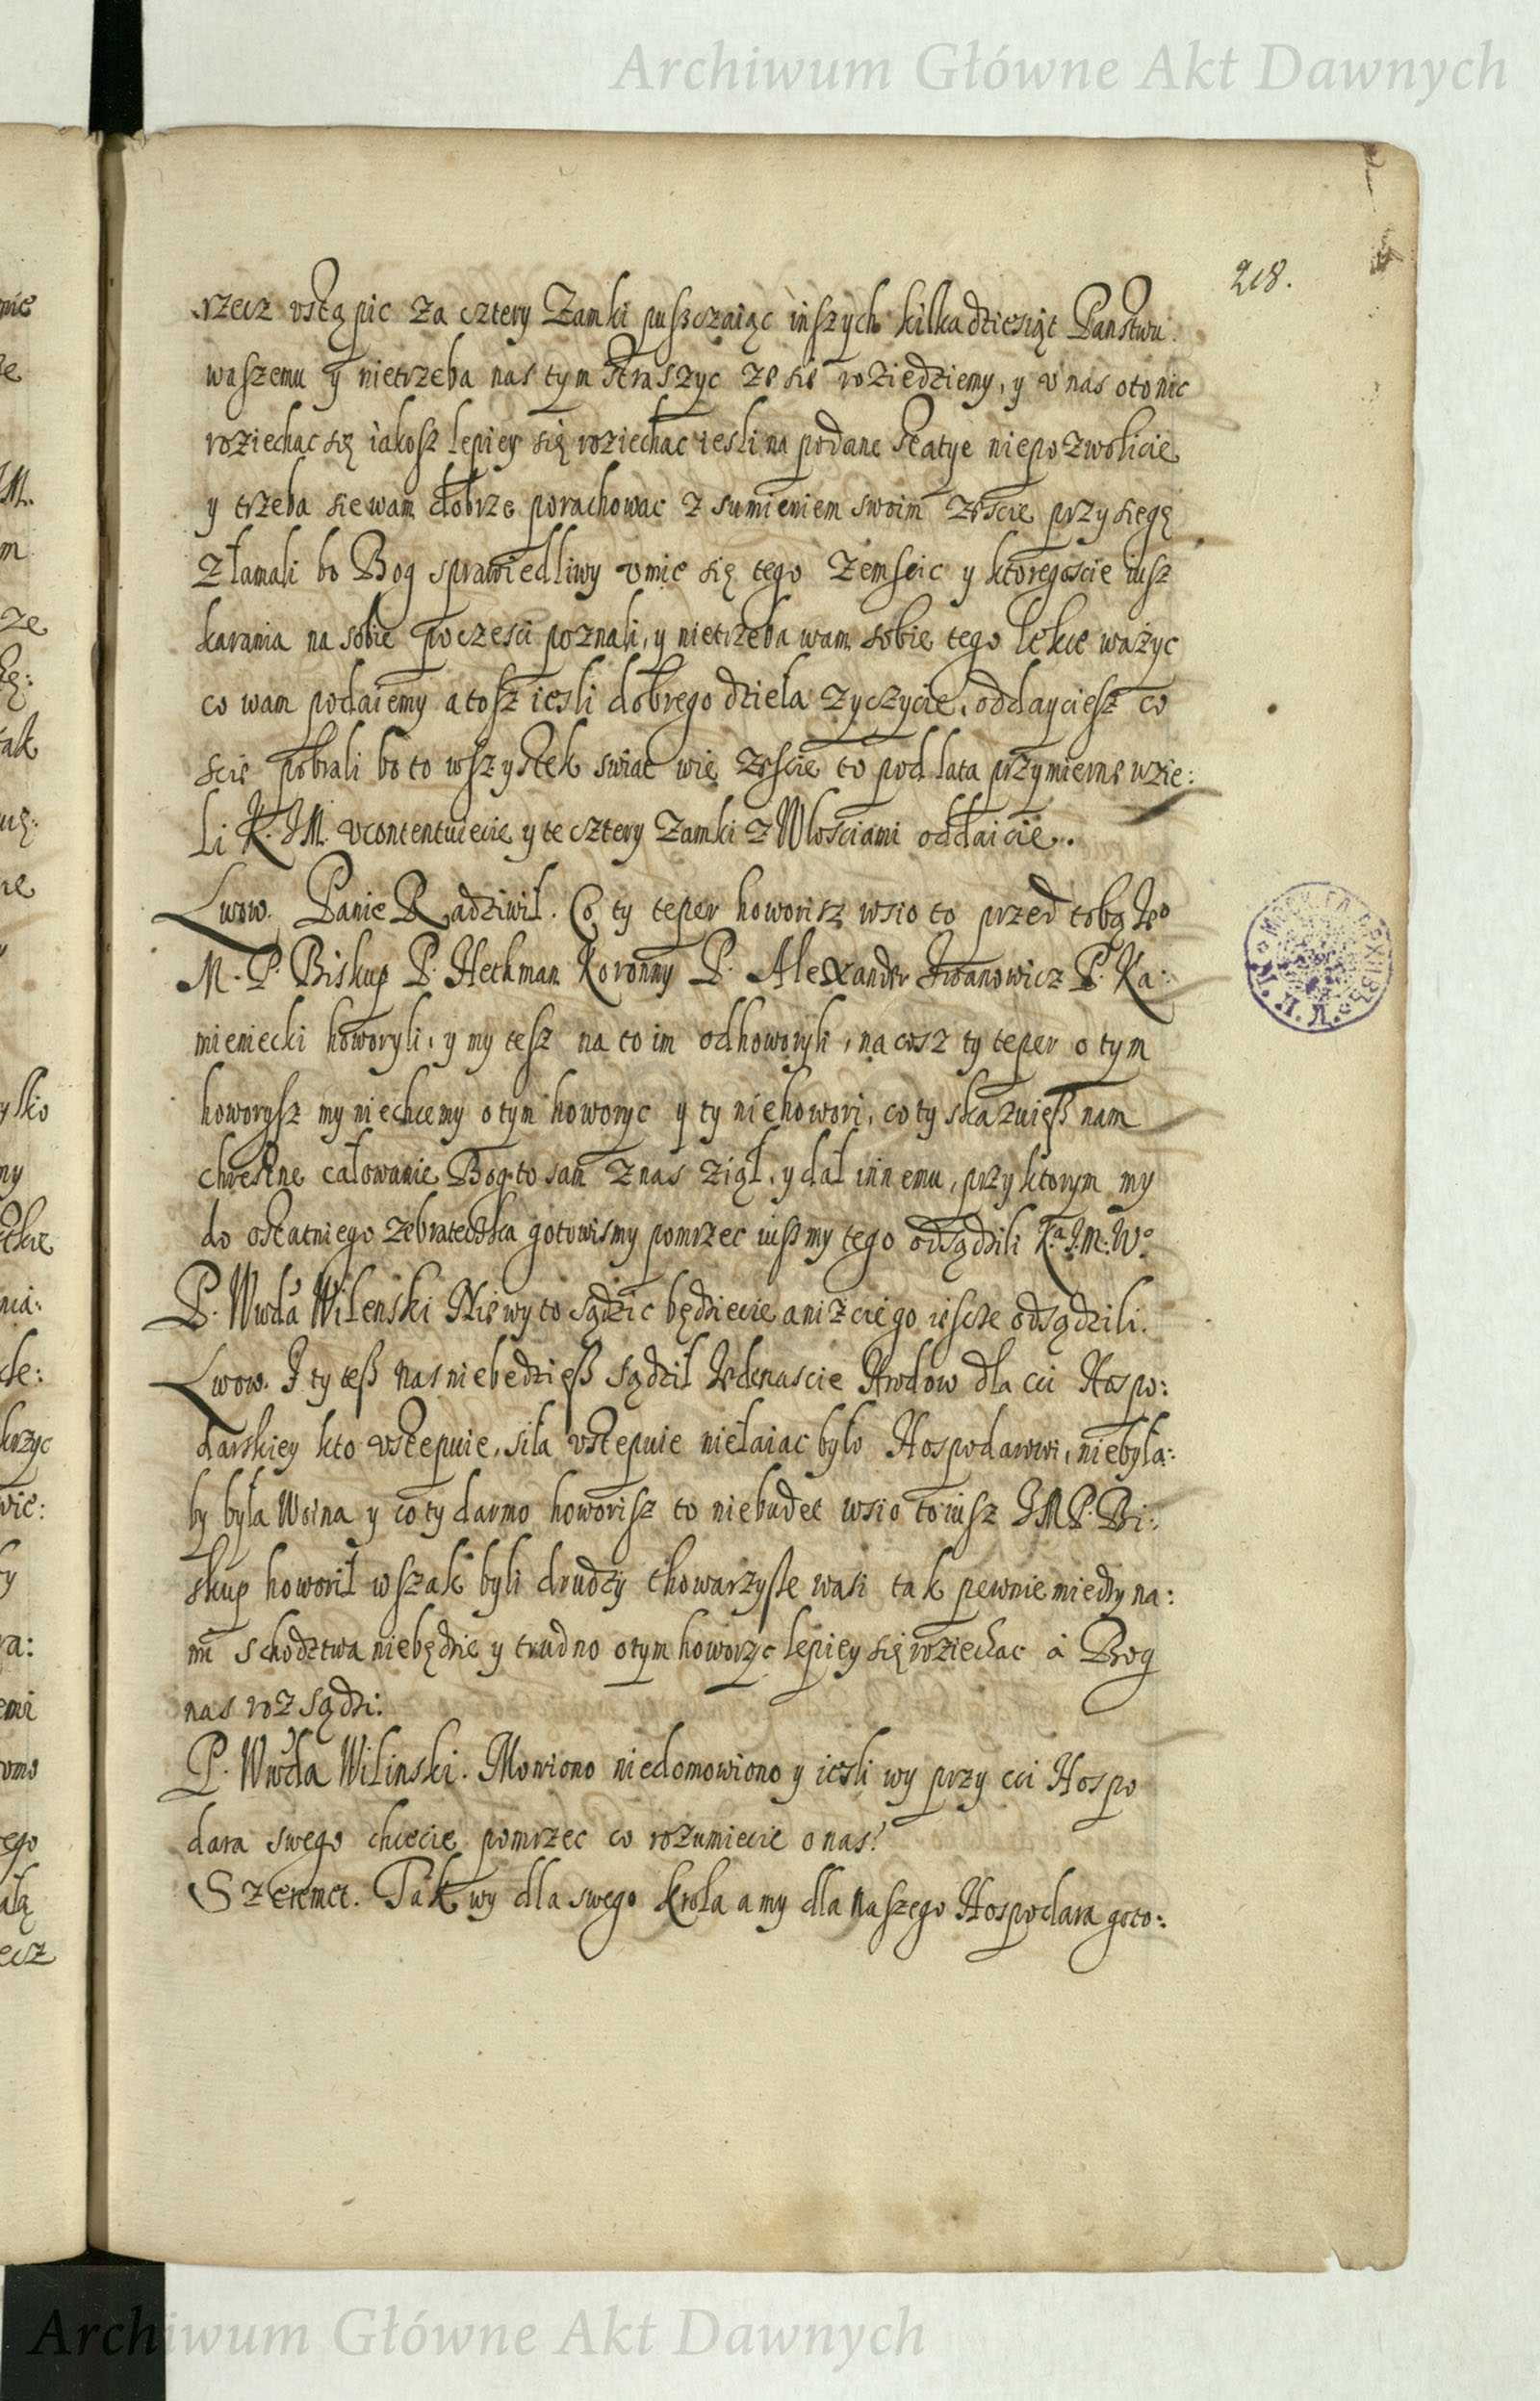 Archiwum Główne Akt Dawnych
218.
rzecz ustąpic za cztery Zamki puszczaiąc inszych kilkadziesiąt Panstwu
waszemu y nietrzeba nas tym straszyc ze sie roziedziemy, y u nas oto nic
roziechac się iakosz lepiey się roziechac iesli na podane statye niepozwolicie
y trzeba sie wam dobrze porachowac z sumieniem swoim zescie przysięgę
złamali bo Bog sprawiedliwy umie się tego zemscic y ktoregoscie iusz
karania na sobie poczesci poznali, y nietrzeba wam sobie tego lekce ważyc
co wam podaiemy a tosz iesli dobrego dzieła zyczycie, oddayciesz co
scie pobrali bo to wszystek swiat wie zescie to pod lata przymierne wzie:
li K. J M. ucontentuiecie y te cztery Zamki z Włosciami oddaicie.
Lwow. Panie Radziwił. Co ty teper howorisz wsio to przed tobą Jeo
M. P. Biskup P. Hethman Koronny P. Alexander Iwanowicz P. Ka:
mieniecki howoryli, y my tesz na to im odhoworyli, na cosz ty teper o tym
howorysz my niechcemy o tym howoryc y ty niehowori, co ty skazuiesz nam
chrestne całowanie Bog to sam z nas ziął, y dał innemu, przy ktorym my
do ostatniego zebrateczka gotowismy pomrzec iusz my tego odsądzili Ka J. M. Wo
P. Wwda Wilenski Nie wy to sądzic będziecie ani żeiego iescze odsądzili.
Lwow. I ty tesz nas niebedziesz sądził Iedenascie Hrodow dla cci Hospo:
darskiey kto ustepuie, siła ustepuie niełaiac było Hospodarowi, niebyła:
by była Woina y co ty darmo howorisz to niebudet wsio to iusz J M P. Bi:
skup howorił wszak byli drudzy thowarzysze wasi tak pewnie miedzy na:
mi schodztwa niebędzie y trudno o tym howoryc lepiey się roziechac a Bog
nas rozsądzi:
P. Wwda Wilinski. Mowiono niedomowiono y iesli wy przy cci Hospo
dara swego chcecie pomrzec co rozumiecie o nas?
Szeremet. Tak wy dla swego krola a my dla naszego Hospodara goto:
Archiwum Główne Akt Dawnych